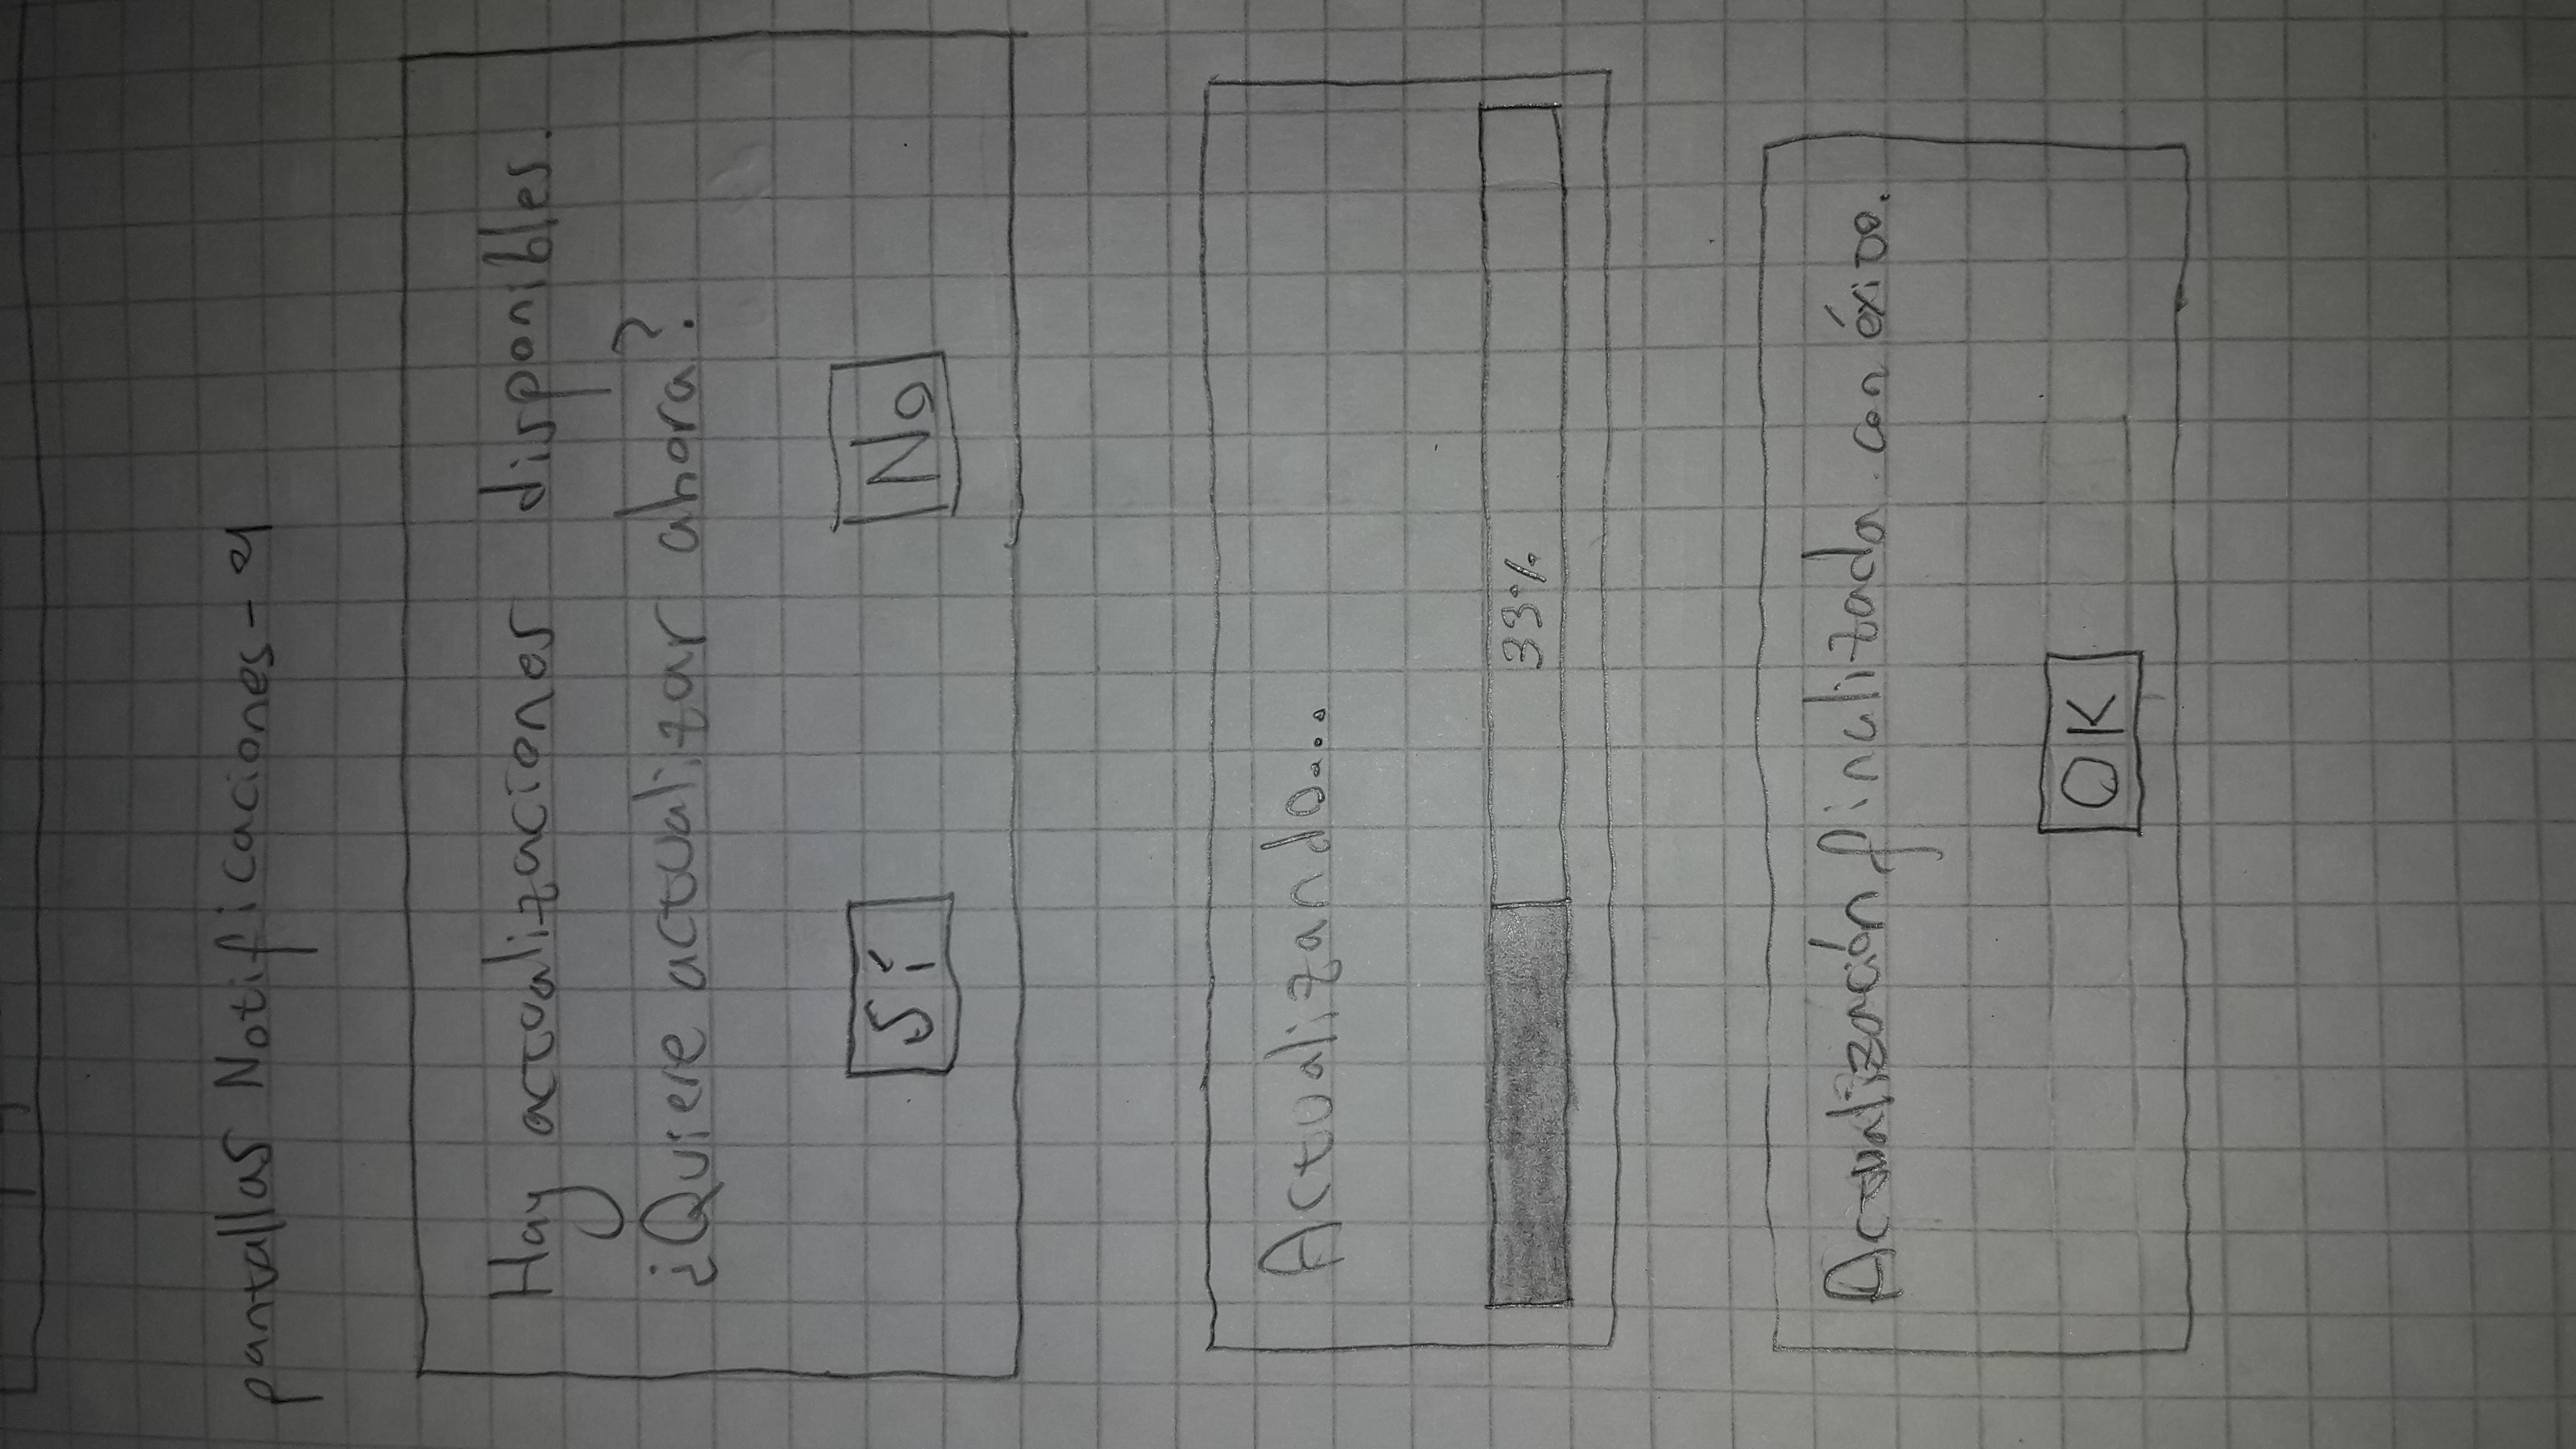 pantallas Notificaciones-
Hay actualizaciones disponibles.
¿Quiere actualizar ahora?
Sí No
Actualizando...
33%
Actualización finalizada con éxito.
OK